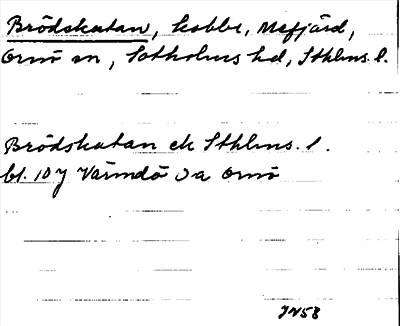 Brödskatan, kobbe, Mefjärd,
Ornö sn, Sotholms hd, Sthlms. l.
Brödskatan ek Sthlms. l.
bl. 107 Värmdö Ja Ornö
JN58